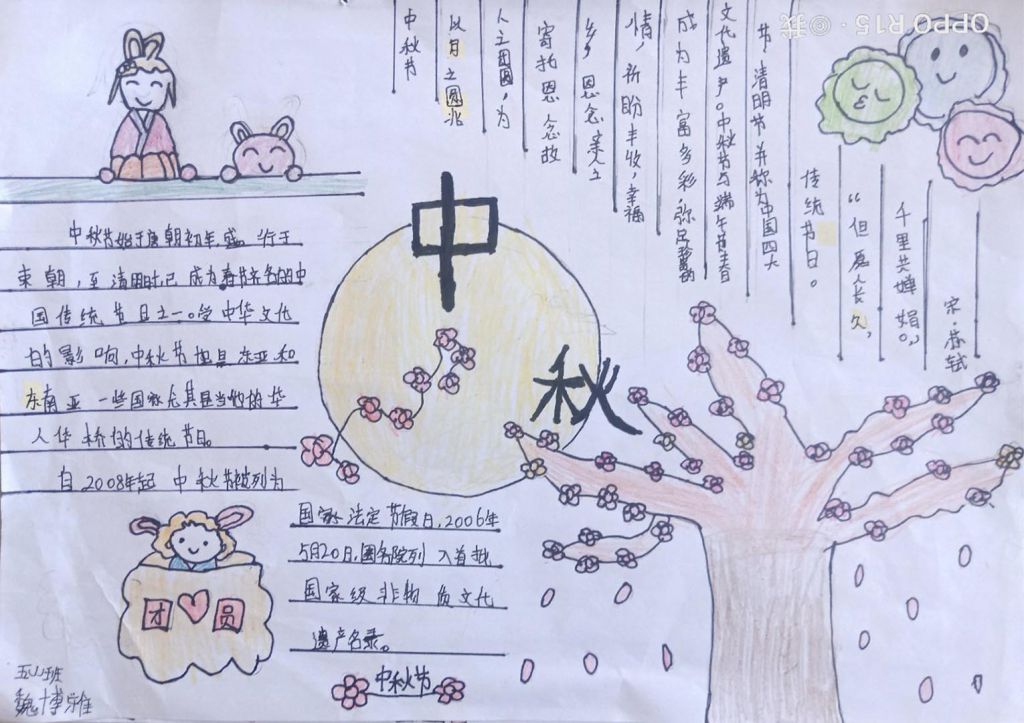 OPPO R15 · 我
中秋节
以月之圆兆
人之团圆,为
寄托恩念故
乡恩念亲之
情,祈盼丰收,幸福
成为丰富多彩,弥足珍贵的
文化遗产。中秋节与端午节春
节,清明节并称为中国四大
传统节日。
“但愿人长久,
千里共婵娟。”
宋·苏轼
中秋
中秋节始于唐朝初年,盛行于
宋朝,至清明时,已成为春节齐名的中
国传统节日之一。受中华文化
的影响,中秋节也是东亚和
东南亚一些国家尤其是当地的华
人华桥们的传统节日。
自2008年起中秋节被列为
国家法定节假日,2006年
5月20日,国务院列入首批
国家级非物质文化
遗产名录。
团员
中秋节
五(1)班
魏博雅